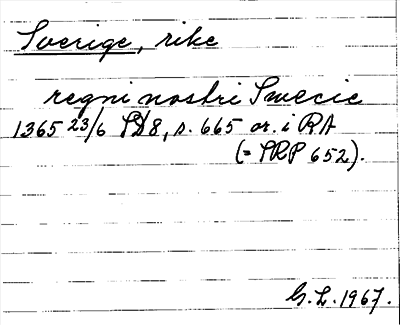 Sverige, rike
regni nostri Swecie
1365 23/6 SD 8, s. 665 or. i RA
(= SRP 652).
G. L. 1967.